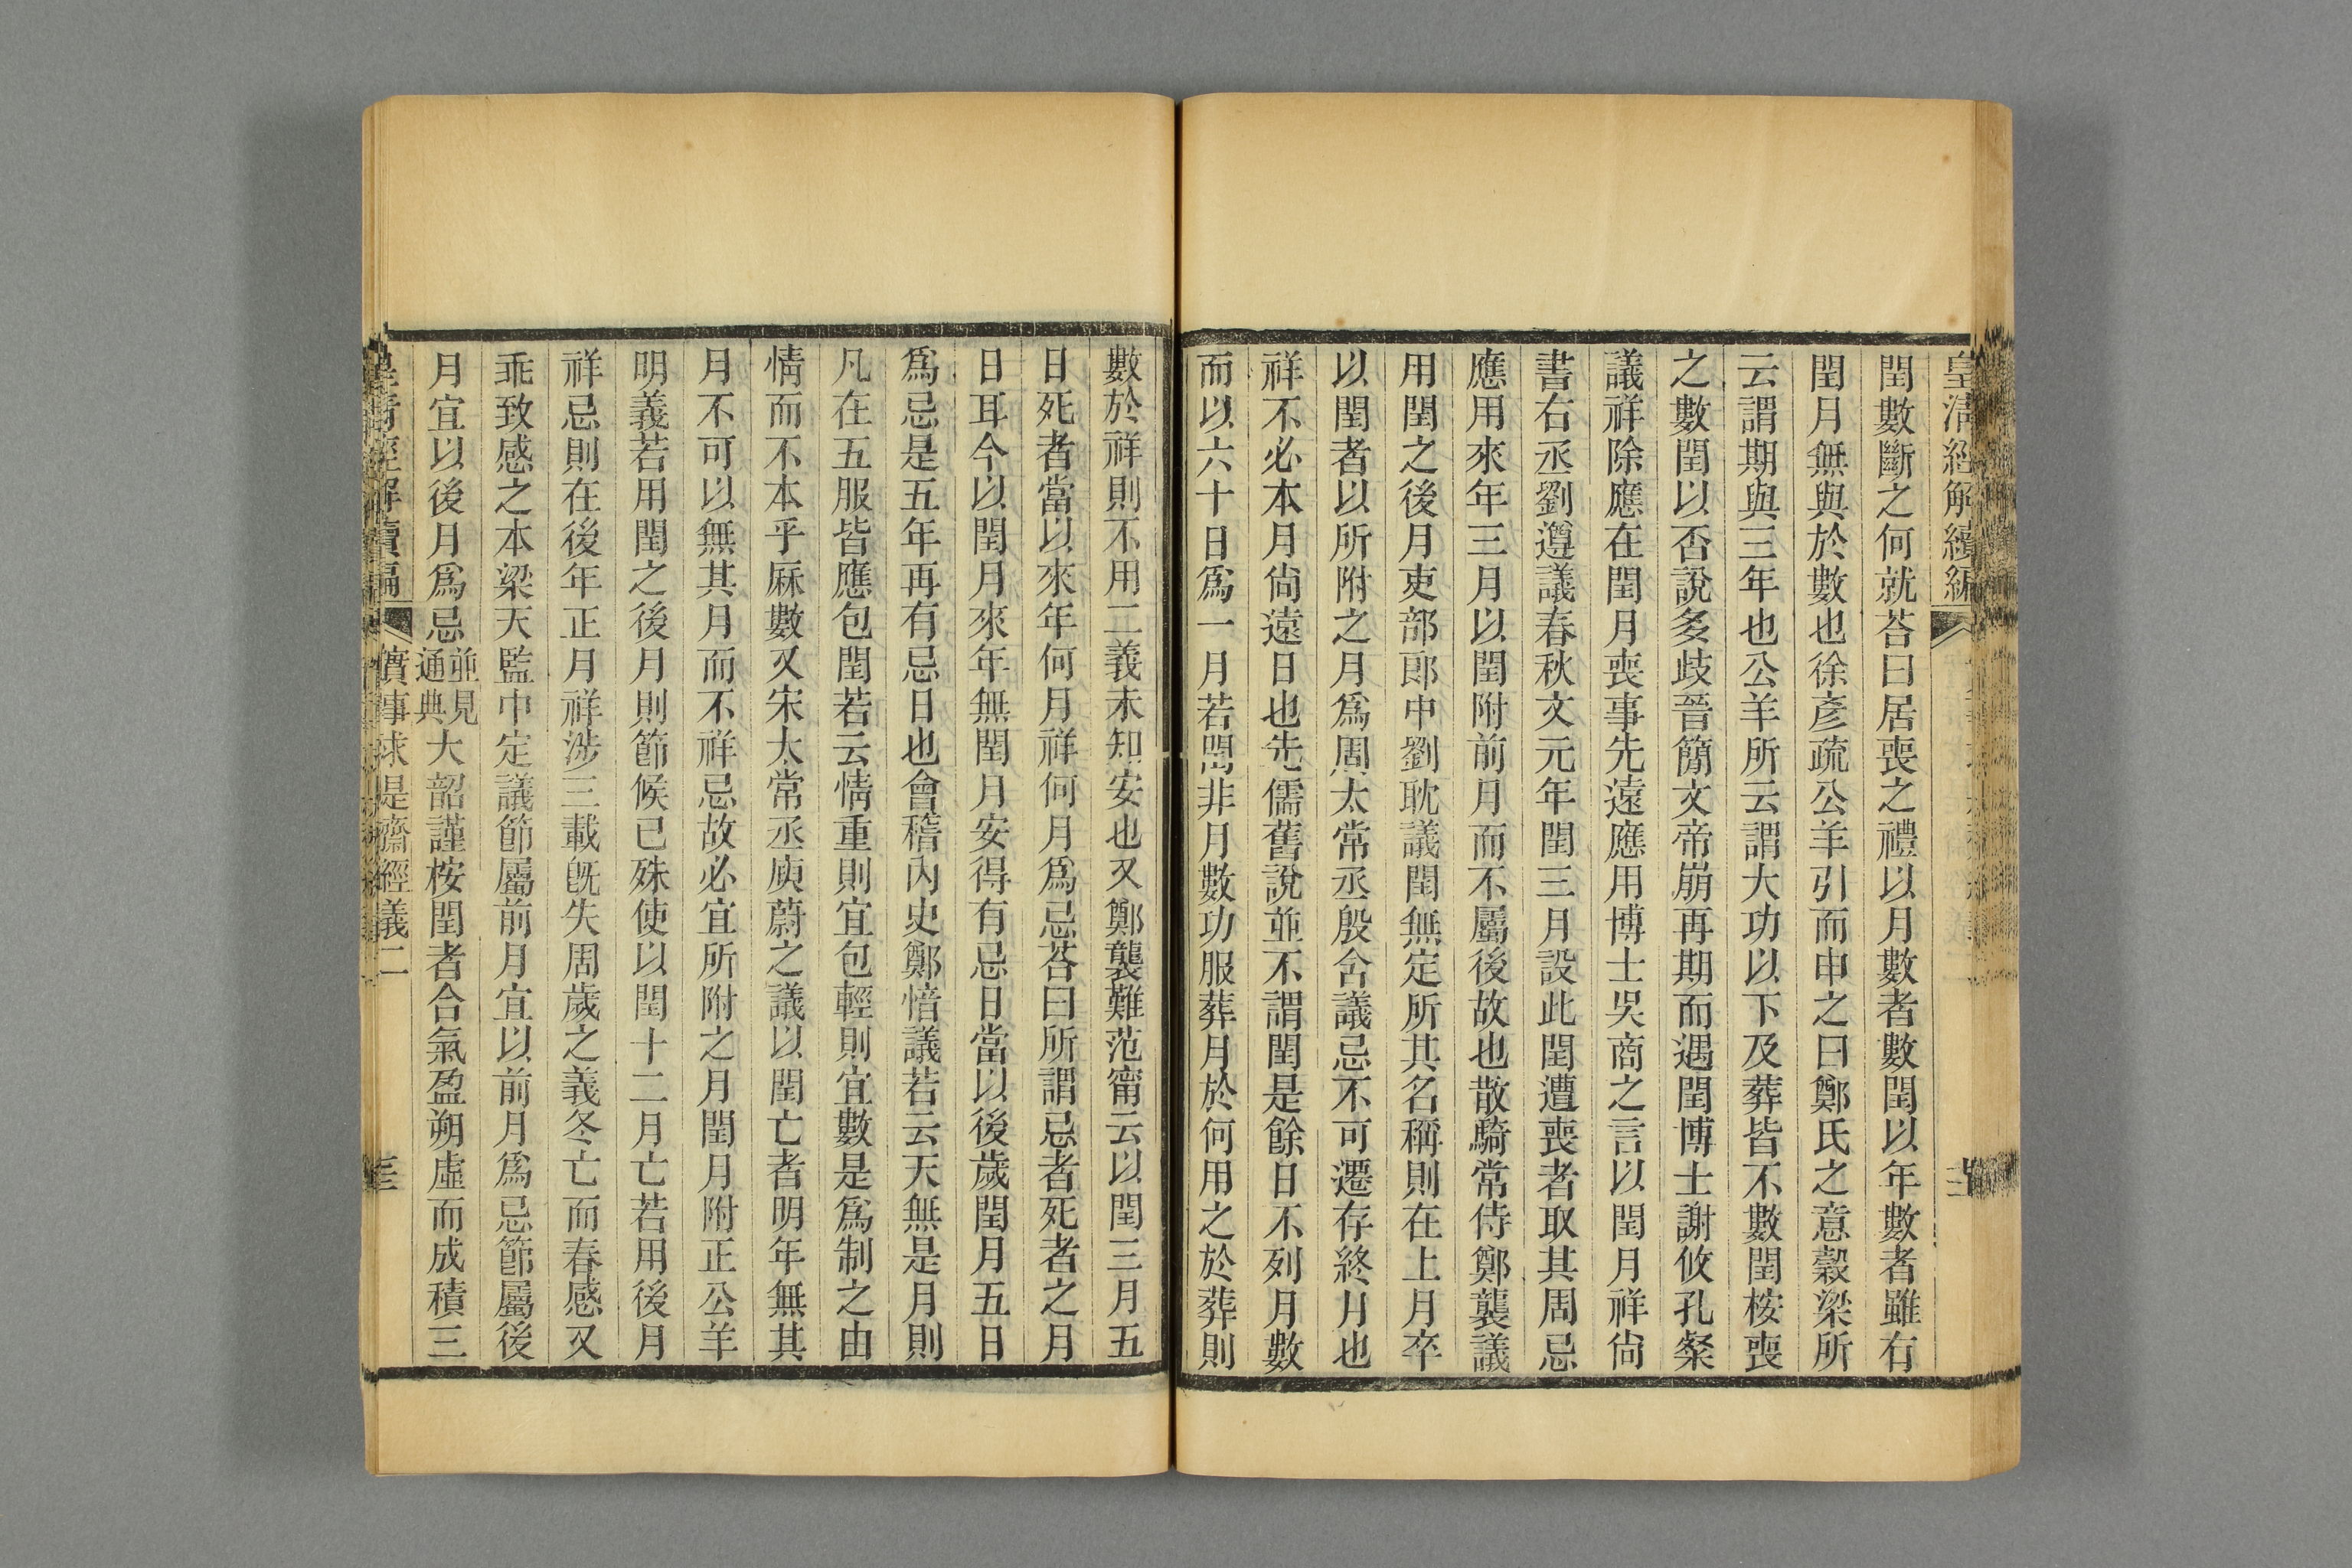 皇清經解續編
閏數斷之何就荅曰居喪之禮以月數者數閏以年數者雖有
閏月無與於數也徐彥疏公羊引而申之曰鄭氏之意穀梁所
云謂期與三年也公羊所云謂大功以下及葬皆不數閏桉喪
之數閏以否說多歧晉簡文帝崩再期而遇閏博士謝攸孔粲
議祥除應在閏月喪事先遠應用博士吳商之言以閏月祥尙
書右丞劉遵議春秋文元年閏三月設此閏遭喪者取其周忌
應用來年三月以閏附前月而不屬後故也散騎常侍鄭襲議
用閏之後月吏部郎中劉耽議閏無定所其名稱則在上月卒
以閏者以所附之月爲周太常丞殷合議忌不可遷存終月也
祥不必本月尙遠日也先儒舊說並不謂閏是餘日不列月數
而以六十日爲一月若閏非月數功服葬月於何用之於葬則
數於祥則不用二義未知安也又鄭襲難范甯云以閏三月五
日死者當以來年何月祥何月爲忌荅曰所謂忌者死者之月
日耳今以閏月來年無閏月安得有忌日當以後歲閏月五日
爲忌是五年再有忌日也會稽內史鄭愔議若云天無是月則
凡在五服皆應包閏若云情重則宜包輕則宜數是爲制之由
情而不本乎厤數又宋太常丞庾蔚之議以閏亡者明年無其
月不可以無其月而不祥忌故必宜所附之月閏月附正公羊
明義若用閏之後月則節候已殊使以閏十二月亡若用後月
祥忌則在後年正月祥涉三載旣失周歲之義冬亡而春感又
乖致感之本梁天監中定議節屬前月宜以前月爲忌節屬後
月宜以後月爲忌並見通典大韶謹桉閏者合氣盈朔虛而成積三
皇清經解續編 實事求是齋經義二 三